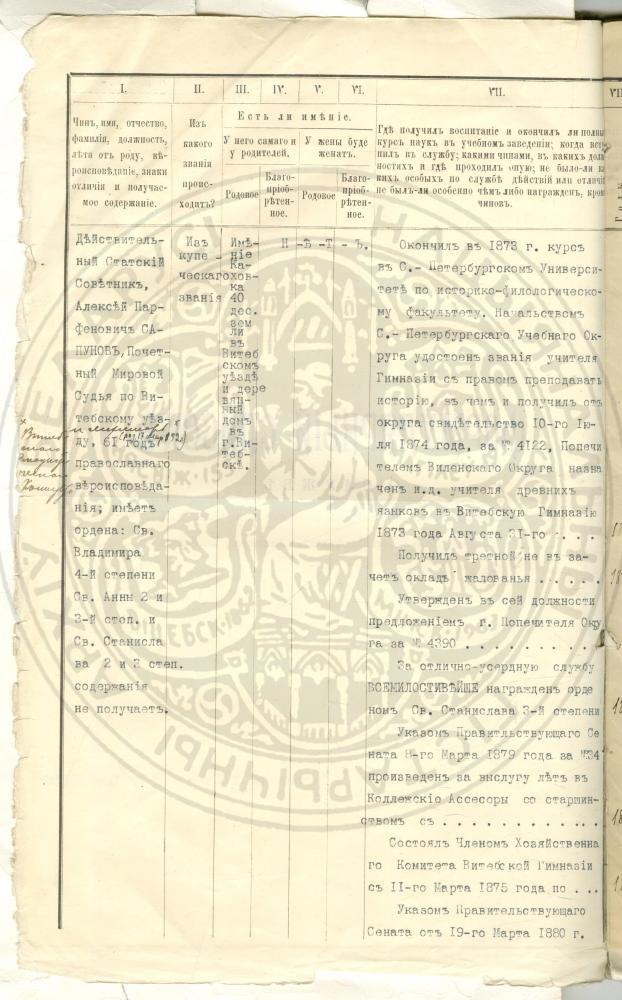 I.
II.
III.
IV.
V.
VI.
VII.
Чинъ, имя, отчество,
фамилія, должность,
лѣта отъ роду, вѣ-
роисповѣданіе, знаки
отличія и получае-
мое содержаніе.
Изъ
какого
званія
проис-
ходитъ?
Есть ли имѣніе.
У него самаго и
у родителей.
У жены буде
женатъ.
Родовое
Благо-
пріобрѣтен-
ное.
Родовое
Благо-
пріоб-
рѣтен-
ное.
Гдѣ получилъ воспитаніе и окончилъ ли полны
курсъ наукъ въ учебномъ заведеніи; когда всту
пилъ въ службу; какими чинами, въ какихъ дол
ностяхъ и гдѣ проходилъ оную; не было-ли ка
кихъ особыхъ по службѣ дѣйствій или отличій
не былъ-ли особенно чѣмъ либо награжденъ, кром
чиновъ.
Дѣйствитель-
ный Статскій
Совѣтникъ,
Алексѣй Пар-
феновичъ СА-
ПУНОВЪ, Почет-
ный Мировой
Судья по Ви-
тебскому уѣз-
ду, 61 годъ
православнаго
вѣроисповѣда-
нія; имѣетъ
ордена: Св.
Владимира
4-й степени
Св. Анны 2 и
3-й степ. и
Св. Станисла
ва 2 и 3 степ.
содержанія
не получаетъ.
Изъ
купе -
ческаго
званія
Имѣ-
ніе
Ка-
чехов-
ка
40
дес.
зем
ли
въ
Витеб
скомъ
уѣздѣ
и дере
вян-
ный
домъ
въ
г.Ви-
теб-
скѣ.
Н -ѣ -т - ъ.
Окончилъ въ 1873 г. курсъ
въ С.- Петербургскомъ Универси-
тетѣ по историко-филологическо-
му факультету. Начальствомъ
С.- Петербургскаго Учебнаго Ок-
руга удостоенъ званія учителя
Гимназіи съ правомъ преподавать
исторію, въ чемъ и получилъ отъ
округа свидѣтельство 10-го Ію-
ля 1874 года, за № 4122, Попечи
телемъ Виленскаго Округа назна
ченъ и.д. учителя древнихъ
языковъ въ Витебскую Гимназію
1873 года Августа 31-го . . . .
Получилъ третной не въ за-
четъ окладъ жалованья . . . . . .
Утвержденъ въ сей должности
предложеніемъ г. Попечителя Окру
га за № 4390 . . . . . . . . . .
За отлично-усердную службу
ВСЕМИЛОСТИВѢЙШЕ награжденъ орде
номъ Св. Станислава 3-й степени
Указомъ Правительствующаго Се
ната 8-го Марта 1879 года за №34
произведенъ за выслугу лѣтъ въ
Коллежскіе Ассесоры со старшин-
ствомъ съ . . . . . . . . . . . .
Состоялъ Членомъ Хозяйственна
го Комитета Витебской Гимназіи
съ 11-го Марта 1875 года по . ..
Указомъ Правительствующаго
Сената отъ 19-го Марта 1880 г.